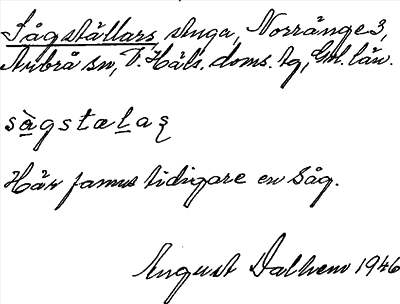 Sågställars stuga, Norränge 3,
Arbrå sn, V. Häls. doms. tg, Gvl. län.
sàgstæḷaȿ
Här fanns tidigare en såg.
August Dalhem 1946